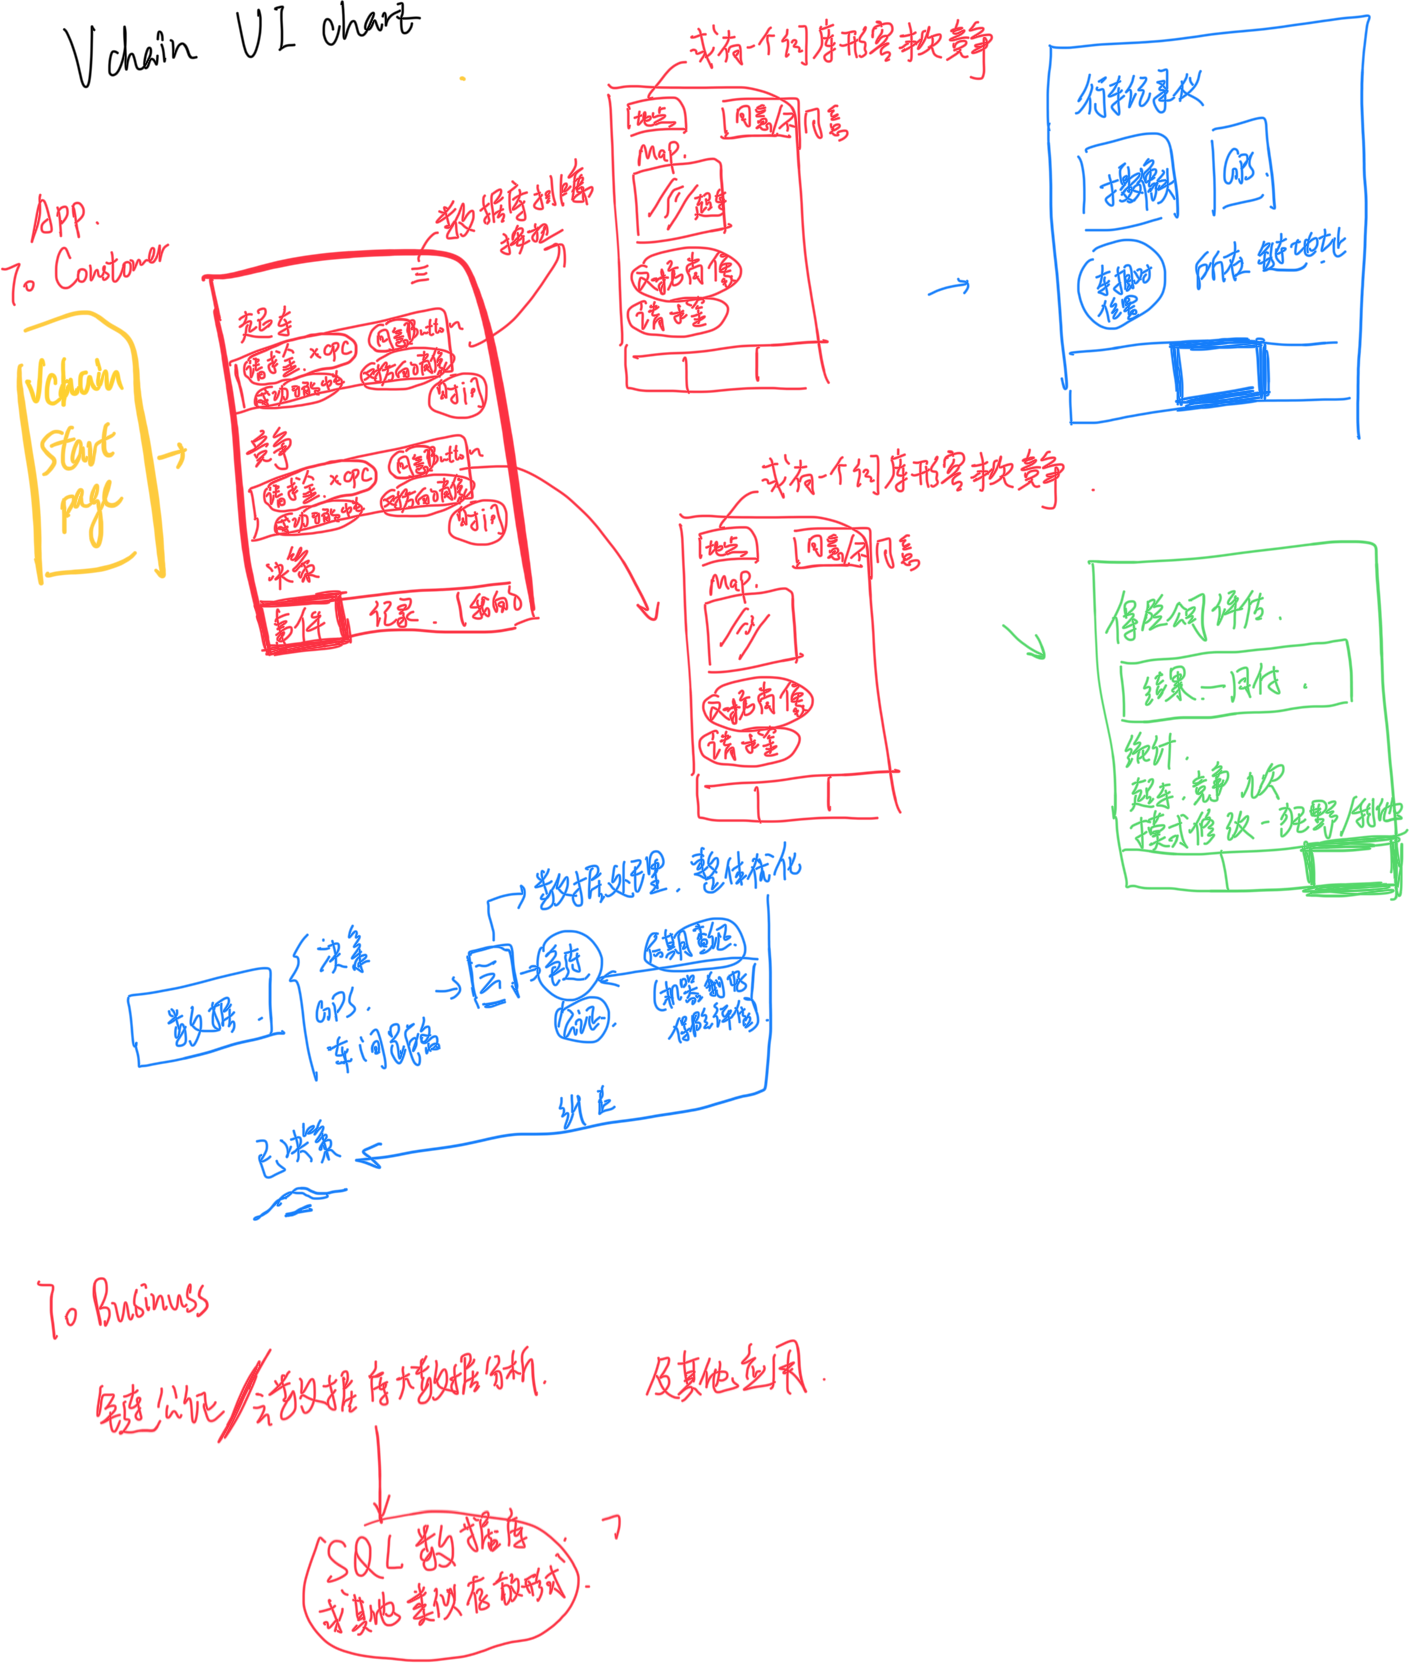 Vchain UI chart
App.
To Constomer
Vchain
Start
page
数据库排嘱
按扭
三
超车
请求金. ×OPC
同意Button
对方向的肖像
时间
竞争
请求金. ×OPC
同意Button
对方向的肖像
时间
决策
事件
记录.
我的
或有一个词库形容本次竞争
地点
同意/不同意
Map.
超车
对方肖像
请求金
或有一个词库形容本次竞争.
地点
同意/不同意
Map.
对方肖像
请求金
行车记录仪
摄像头
GPS.
车相对
位置
所在链地址
保险公司评估.
结果.一月付.
统计.
超车.竞争 几次
模式修改-狂野/利他
数据.
决策
GPS.
车间距离
云
数据处理.整体优化
链
公证.
后期查证.
(机器判断/
保险评估)
纠正
已决策
To Businuss
链公证/云数据库大数据分析.
及其他应用.
SQL数据库.
或其他类似存放形式.